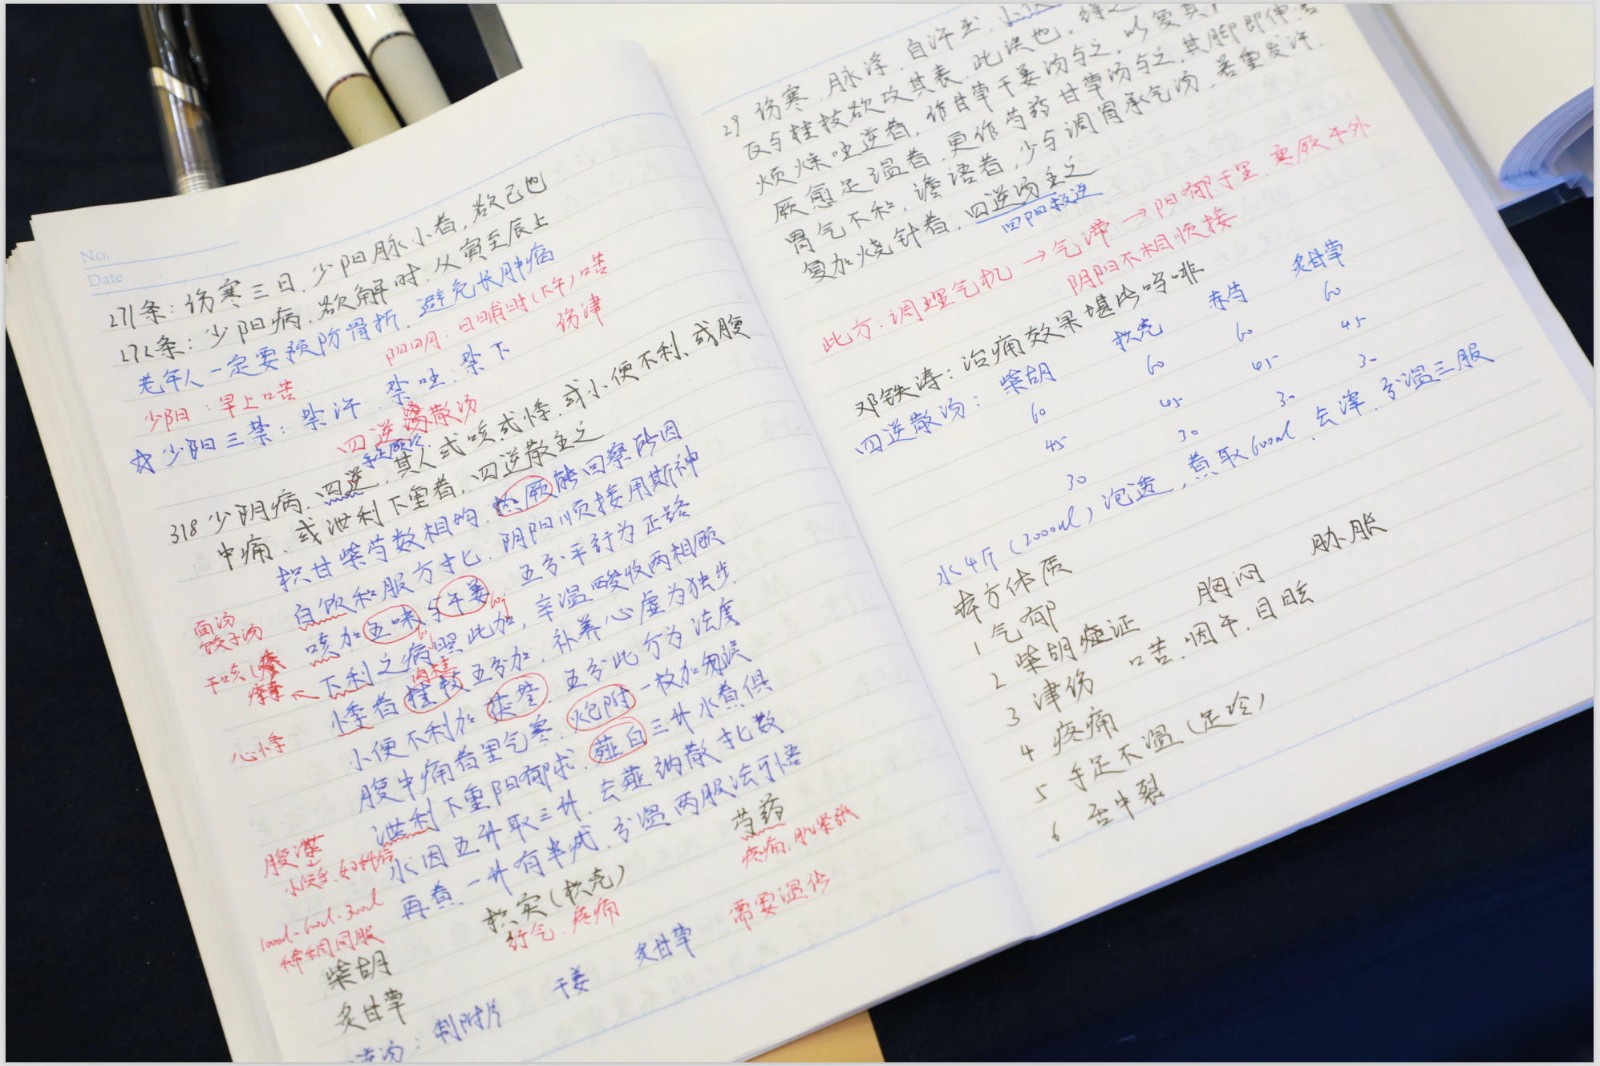 No.
Date
271条：伤寒三日，少阳脉小者，欲已也
272条：少阳病，欲解时，从寅至辰上
老年人一定要预防骨折，避免长肿瘤
少阳：早上口苦
阳明：日晡时(下午)口苦
伤津
☆少阳三禁：禁汗．禁吐．禁下
四逆散汤
318 少阴病，四逆，其人或咳，或悸，或小便不利、或腹
中痛，或泄利下重者，四逆散主之
枳甘柴芍数相均，热厥能回察所因
白饮和服方寸匕，阴阳顺接用斯神
咳加五味与干姜，五分平行为正路
下利之病照此加，辛温酸收两相顾
悸者桂枝五分加，补养心虚为独步
肉桂
小便不利加茯苓，五分此方为法度
腹中痛者里气寒，炮附一枚加勿误
泄利下重阳郁求，薤白三升水煮俱
水因五升取三升，去薤纳散寸匕数
再煮一升有半成，分温两服法可悟
面汤
饺子汤
干咳
心悸
腹凉
枳实(枳壳)
行气．疼痛
芍药
疼痛．
需要温化
柴胡
炙甘草
制附片
干姜
炙甘草
29 伤寒．脉浮，自汗出，小
反与桂枝欲攻其表，此误也，得之
烦燥吐逆者，作甘草干姜汤与之，以复其
厥愈足温者，更作芍药甘草汤与之，其脚即伸
胃气不和，谵语者，少与调胃承气汤．若重发汗．
复加烧针者，四逆汤主之
回阳救逆
此方：调理气机→气滞→阳郁于里，寒厥于外
阴阳不相顺接
邓铁涛：治痛效果堪比吗啡
四逆散汤：柴胡 枳壳 赤芍 炙甘草
60 60 60 60
45 45 45 45
30 30 30 30
水4斤(2000ml)泡透，煮取600ml，去滓，分温三服
本方体质
1 气郁 胸闷 胁胀
2 柴胡症证 口苦，咽干，目眩
3 津伤
4 疼痛
5 手足不温(足冷)
6 舌中裂